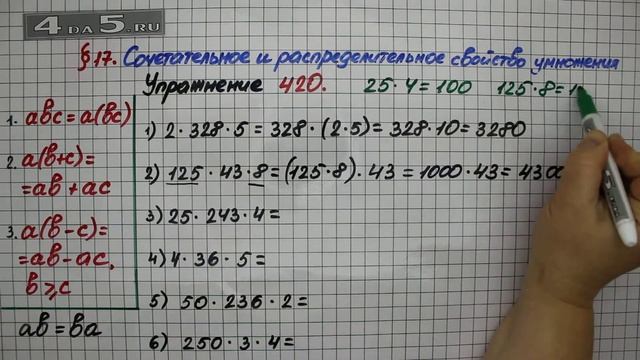 4 DA 5.RU
§17. Сочетательное и распределительное свойство умножения
Упражнение 420. 25·4=100 125·8=1
1. авс=а(вс)
2. а(в+с)=
=ав+ас
3. а(в-с)=
=ав-ас,
в⩾с
ав=ва
1) 2·328·5=328·(2·5)=328·10=3280
2) 125·43·8=(125·8)·43=1000·43=4300
3) 25·243·4=
4) 4·36·5=
5) 50·236·2=
6) 250·3·4=